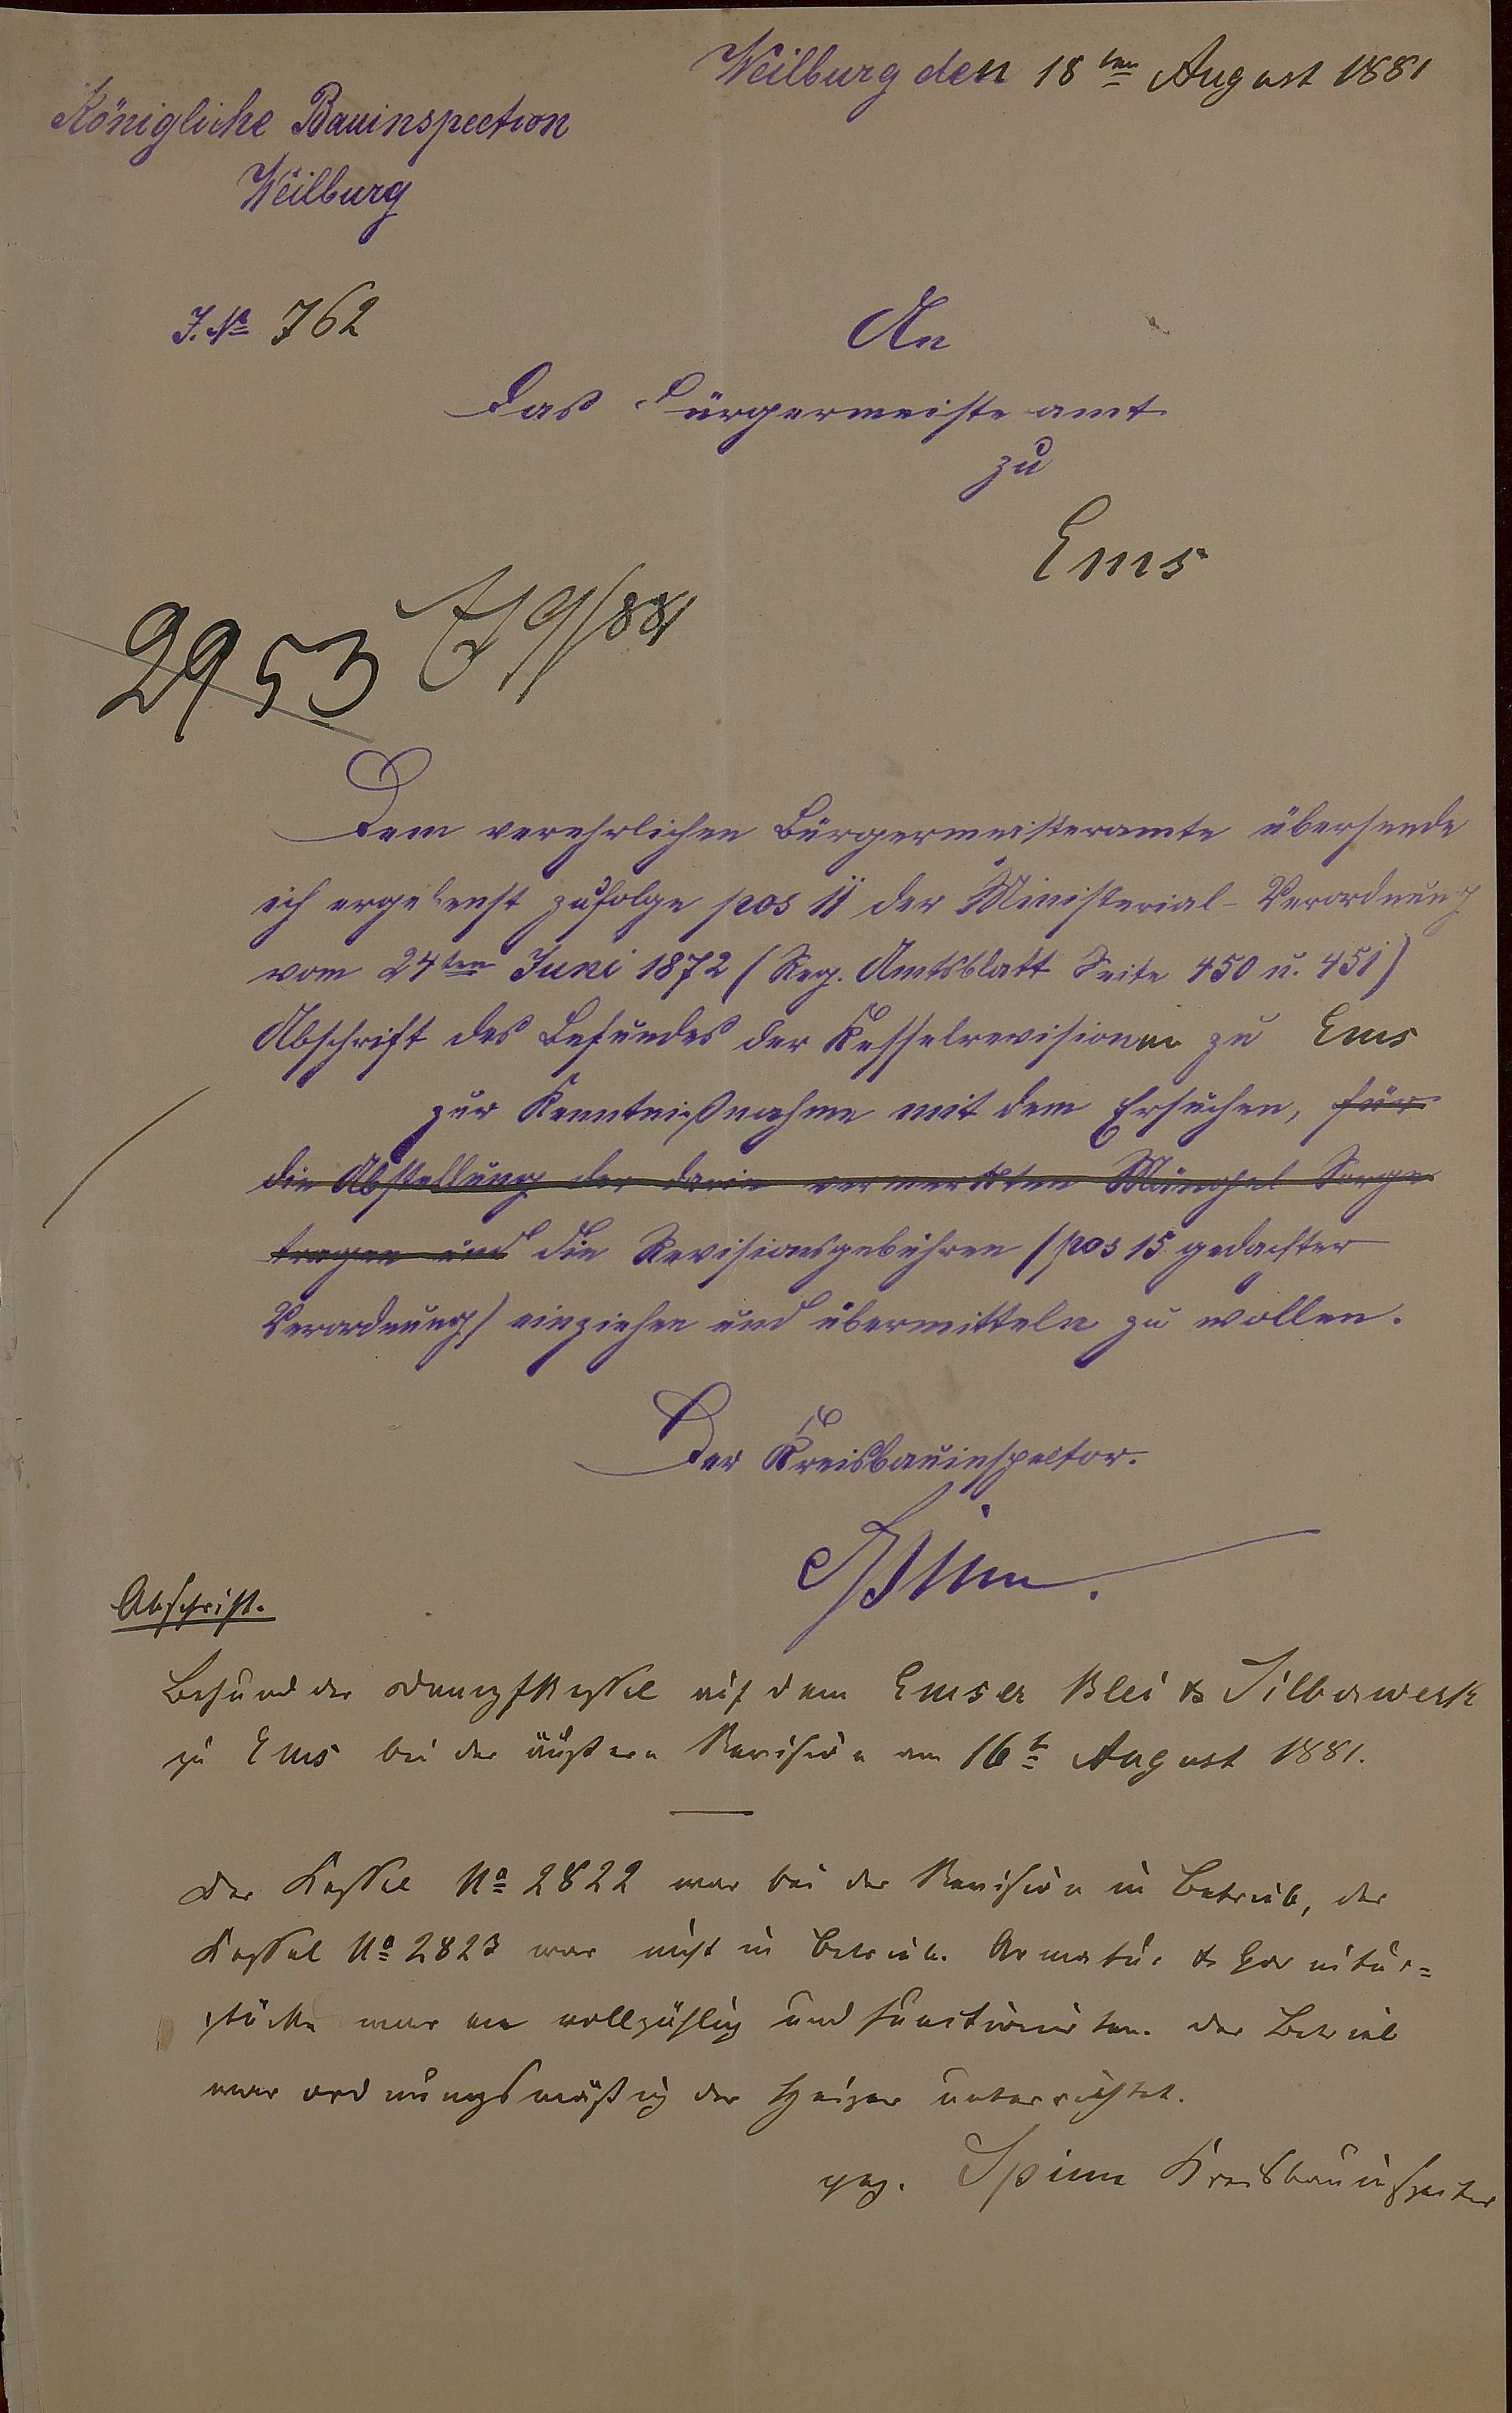 Weilburg den 18ten August 1881
Königliche Bauinspection
Weilburg
J. № 762
An
das Bürgermeisteramt
zu
Ems
2953 9/881
Dem verehrlichen Bürgermeisteramte übersende
ich ergebenst zufolge pos 11 der Ministerial-Verordnung
vom 24ten Juni 1872 (Reg. Amtsblatt Seite 450 u. 451)
Abschrift des Befundes der Kesselrevisionen zu Ems
zur Kenntnißnahme mit dem Ersuchen, für
die Abstellung der darin vermerkten Mängel Sorge
tragen und die Revisionsgebühren (pos 15 gedachter
Verordnung) einziehen und übermitteln zu wollen.
Der Kreisbauinspector.
Spinn.
Abschrift.
Befund der Dampfkessel auf dem Emser Blei & Silberwerk
zu Ems bei der äußern Revision am 16t August 1881.
Der Kessel № 2822 war bei der Revision in Betrieb, der
Kessel № 2823 war nicht in Betrieb. Armatur & Garnitur=
stücke waren vollzählig und functionirten. Der Betrieb
war ordnungsmäßig der Heizer unterrichtet.
gez. Spinn Kreisbauinspector